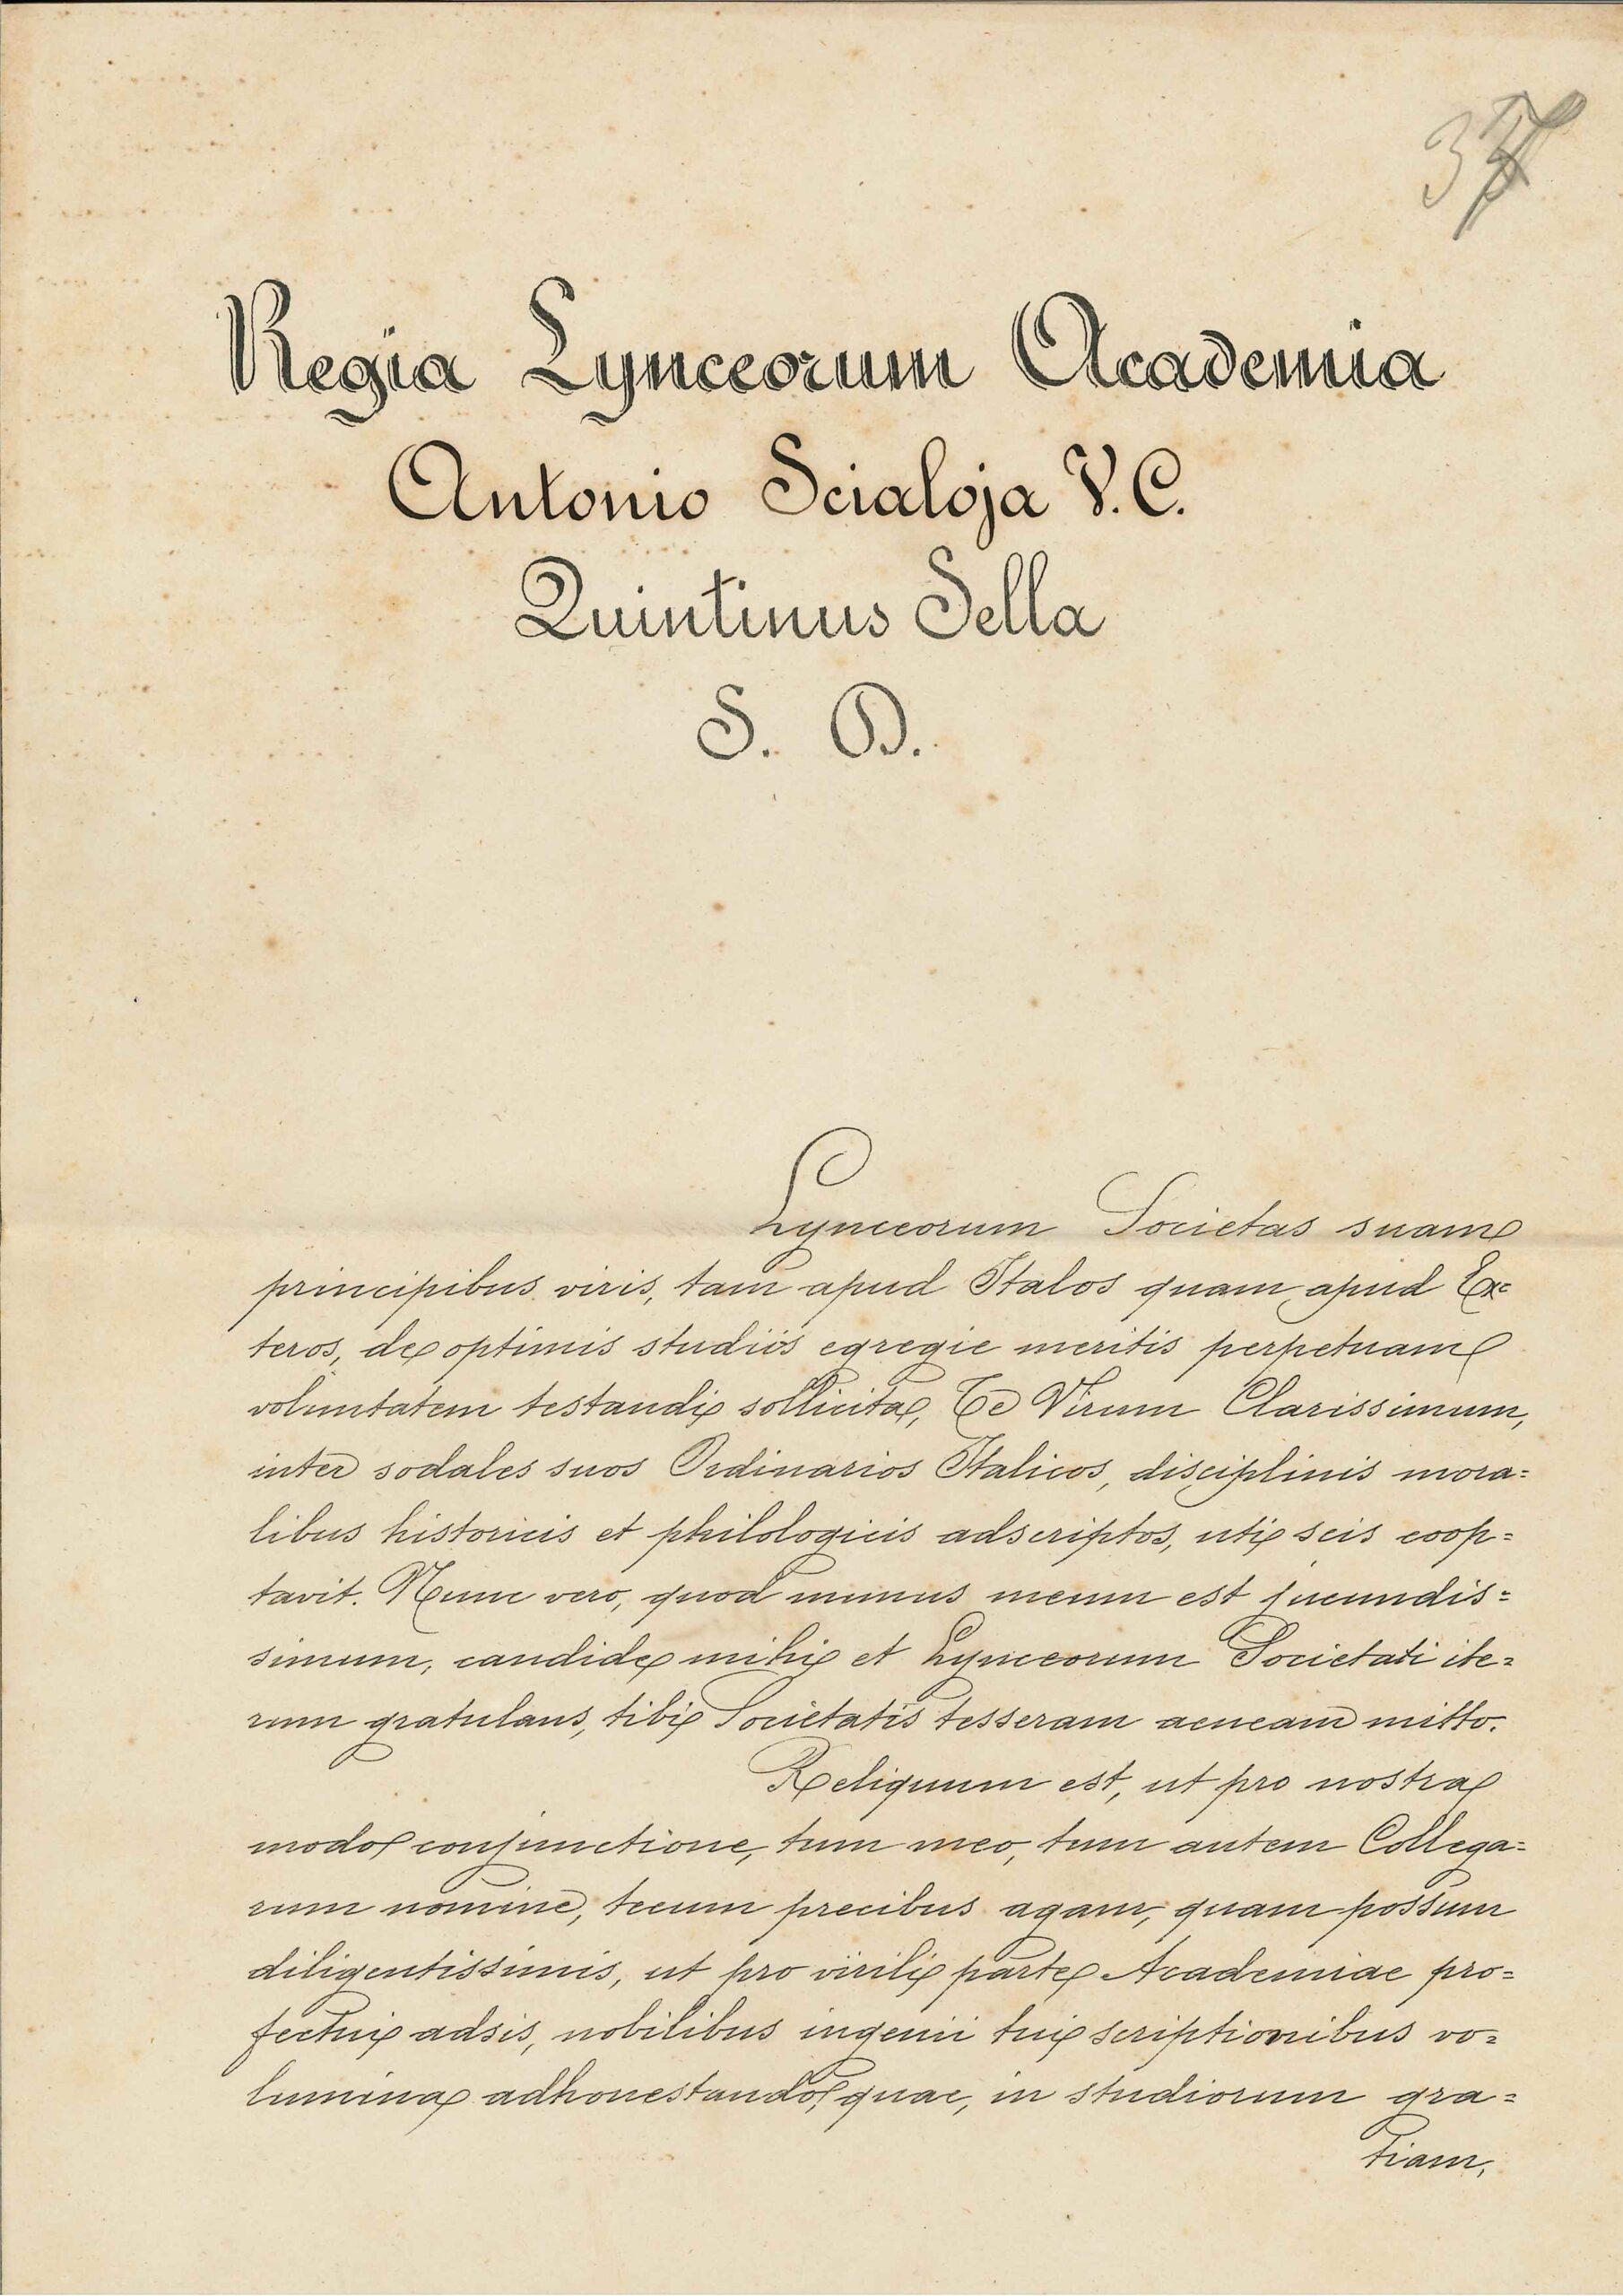 Regia Lynceorum Academia
Antonio Scialoja V. C.
Quintinus Sella
S. D.
Lynceorum Societas suam
principibus viris, tam apud Italos quam apud Ex=
teros, de optimis studiis egregie meritis perpetuam
voluntatem testandi sollicita, Te Virum Clarissimum,
inter sodales suos Ordinarios Italicos, disciplinis mora=
libus historicis et philologicis adscriptos, uti scis coop=
tavit. Nunc vero, quod munus meum est jucundis=
simum, candide mihi et Lynceorum Societati ite=
rum gratulans, tibi Societatis tesseram aeneam mitto.
Reliquum est, ut pro nostra
modo conjunctione, tum meo, tum autem Collega=
rum nomine, tecum precibus agam, quam possum
diligentissimis, ut pro virili parte Academiae pro=
fectui adsis, nobilibus ingenii tui scriptionibus vo=
lumina adhonestando, quae, in studiorum gra=
tiam,